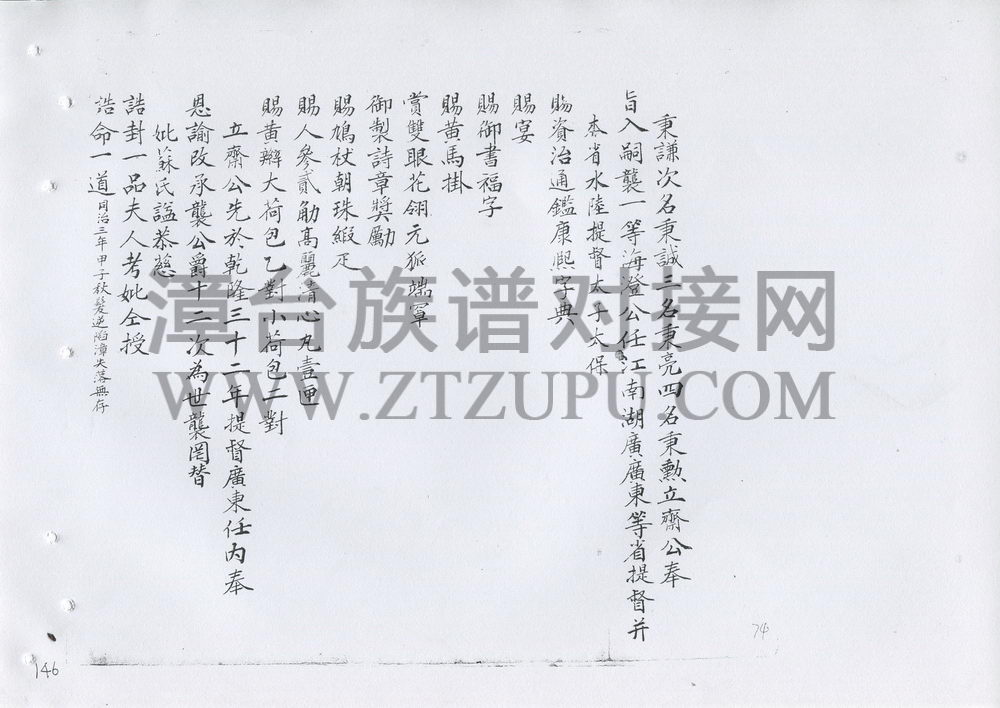 秉謙次名秉誠三名秉亮四名秉勲立齋公奉
旨入嗣襲一等海澄公任江南湖廣廣東等省提督并
本省水陸提督太子太保
賜資治通鑑康熙字典
賜宴
賜御書福字
賜黃馬掛
賞雙眼花翎元狐端罩
御製詩章獎勵
賜鳩杖朝珠緞疋
賜人參貳觔高麗清心丸壹匣
賜黃辮大荷包乙對小荷包二對
立齋公先於乾隆三十二年提督廣東任內奉
恩諭改承襲公爵十二次為世襲罔替
妣蘇氏謚恭慈
誥封一品夫人考妣仝授
誥命一道同治三年甲子秋髮逆陷漳失落無存
漳台族谱对接网
WWW.ZTZUPU.COM
74
146